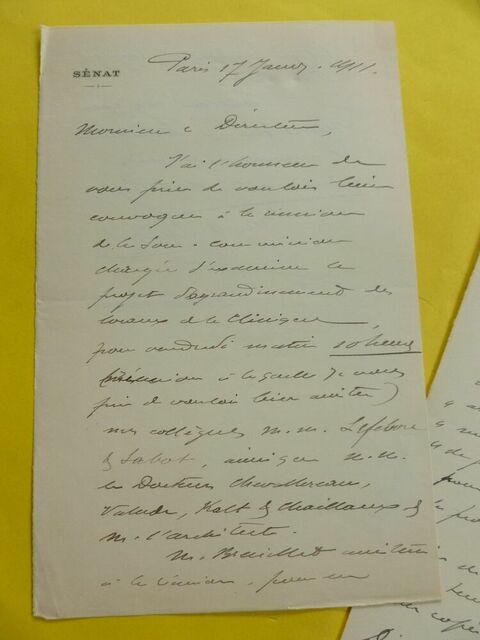 SÉNAT
Paris 17 Janv. 1911.
Monsieur le Directeur,
J'ai l'honneur de
vous prier de vouloir bien
convoquer à la réunion
de la Sous-commission
chargée d'examiner le
projet d'agrandissement des
locaux de la Clinique,
pour vendredi matin 10 heures
(réunion à laquelle je vous
prie de vouloir bien assister)
mes collègues M.M. Lefebvre
& Sabot, ainsi que M.M.
les Docteurs Chevallereau,
Valude, Kalt & Chaillous &
M. l'architecte.
M. assistera
à la réunion, pour